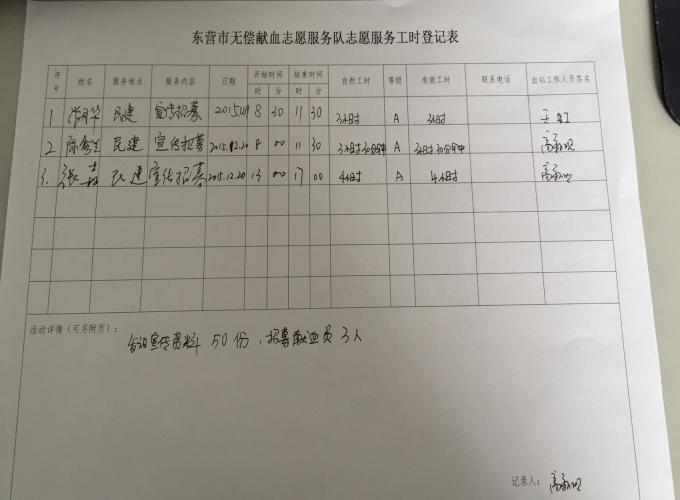 东营市无偿献血志愿服务队志愿服务工时登记表
序号 姓名 服务地点 服务内容 日期 开始时间 结束时间 自然工时 等级 有效工时 联系电话 血站工作人员签名
时 分 时 分
1 民建 宣传招募 8 30 11 30 3小时 A 3小时 王红
2 民建 宣传招募 2015.12.20 8 00 11 30 3小时30分钟 A 3小时30分钟
3. 民建 宣传招募 2015.12.20 13 00 17 00 4小时 A 4小时
活动详情（可另附页）：
宣传资料 50份，招募献血员 3人
记录人：